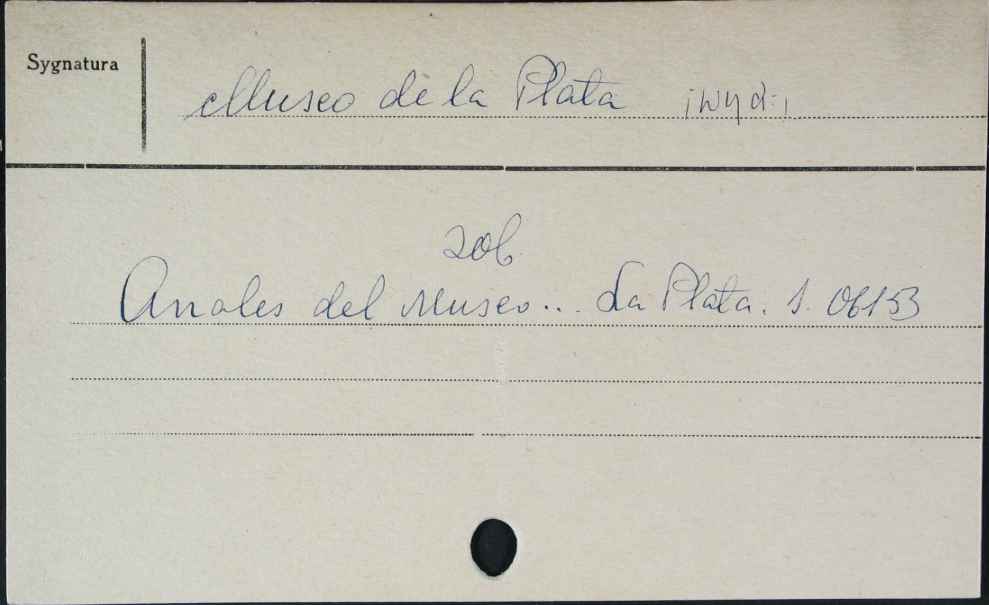 Sygnatura
Museo de la Plata /wyd:/
zob.
Anales del Museo... La Plata. S. 06153